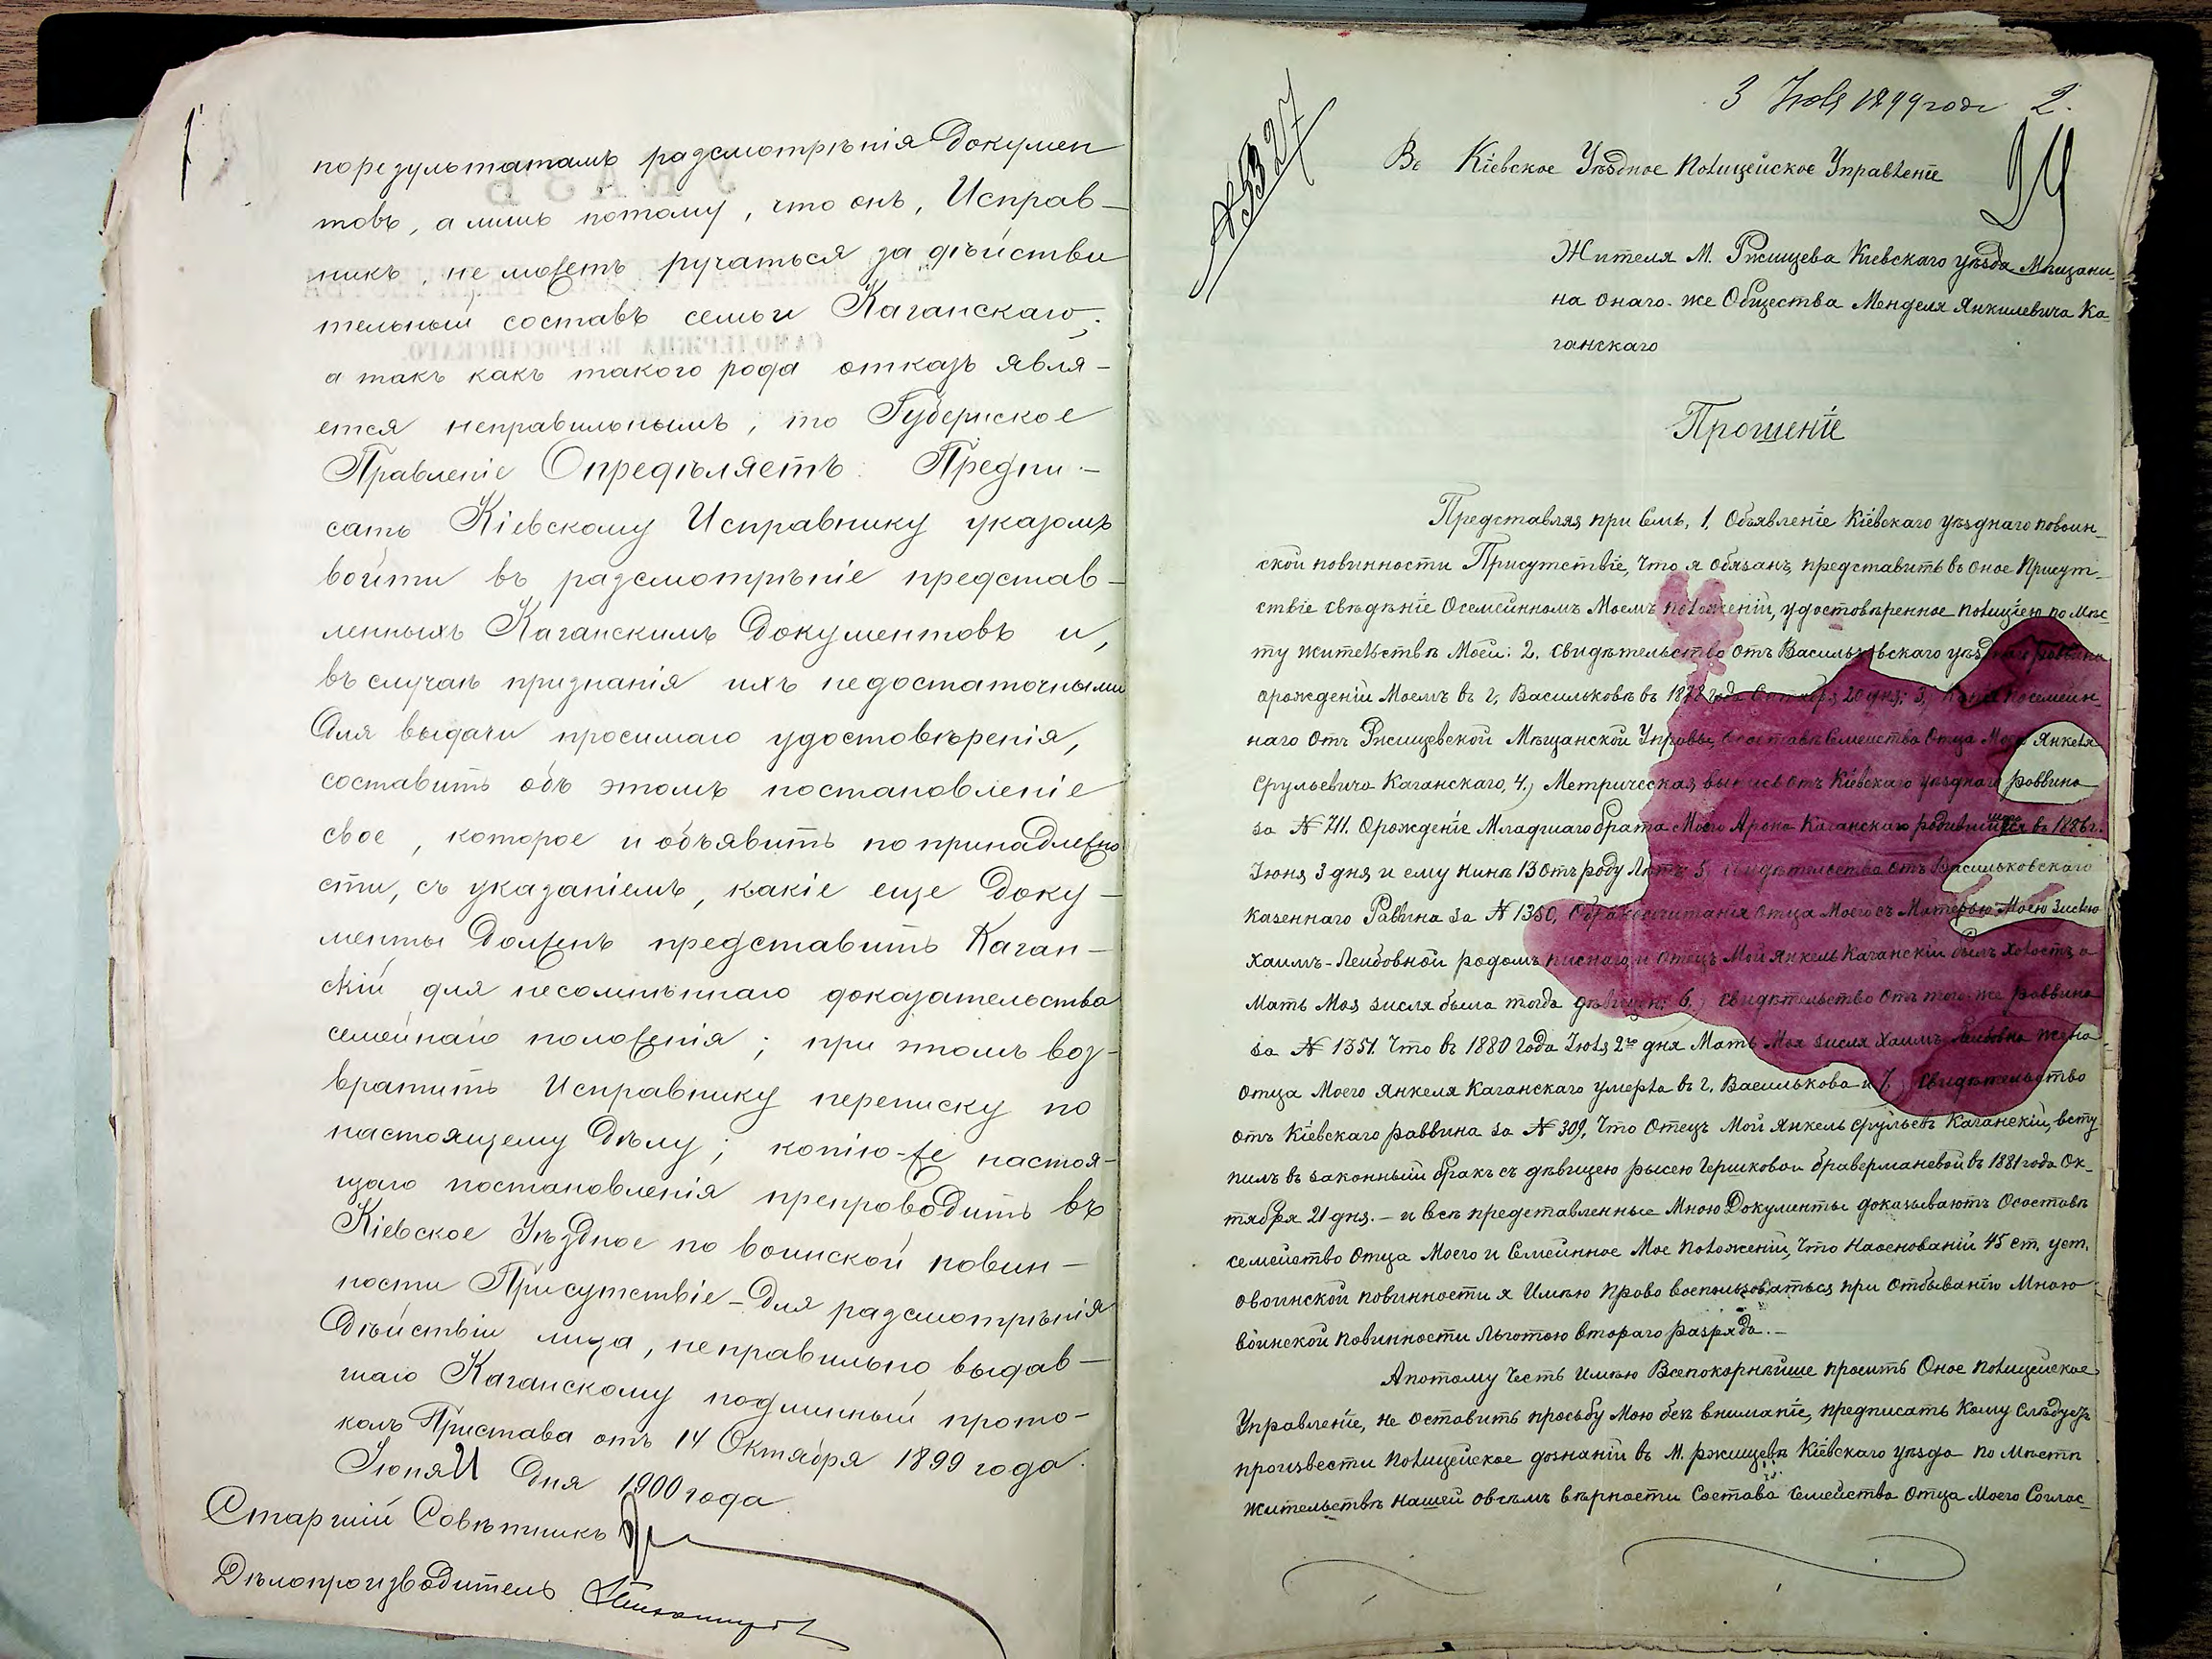 по результатамъ разсмотрѣнія докумен
товъ, а лишь потому, что онъ, Исправ-
никъ, не можетъ ручаться за дѣйстви
тельный составъ семьи Каганскаго;
а такъ какъ такого рода отказъ явля-
ется неправильнымъ, то Губернское
Правленіе Опредѣляетъ: Предпи-
сать Кіевскому Исправнику указомъ
войти въ разсмотрѣніе представ-
ленныхъ Каганскимъ документовъ и,
въ случаѣ признанія ихъ недостаточными
для выдачи просимаго удостовѣренія,
составить объ этомъ постановленіе
свое, которое и объявить по принадлежно
сти, съ указаніемъ, какіе еще доку-
менты долженъ представить Каган-
скій для несомнѣннаго доказательства
семейнаго положенія; при этомъ воз-
вратить Исправнику переписку по
настоящему дѣлу; копію-же настоя-
щаго постановленія препроводить въ
Кіевское Уѣздное по воинской повин-
ности Присутствіе - для разсмотрѣнія
дѣйствій лица, неправильно выдав-
шаго Каганскому подлинный прото-
колъ Пристава отъ 14 Октября 1899 года.
Іюня 11 дня 1900 года
Старшій Совѣтникъ
Дѣлопроизводитель
3 Іюля 1899 года 2.
24
№ 5327
Въ Кіевское Уѣздное Полицейское Управленіе
Жителя М. Ржищева Кіевскаго уѣзда Мѣщани
на онаго-же Общества Менделя Янкилевича Ка
ганскаго
Прошеніе
Представляя при Семъ, 1, Объявленіе Кіевскаго уѣзднаго повоин-
ской повинности Присутствіе, Что я обязанъ, представить въ оное Присут-
ствіе свѣдѣніе Осемейномъ Моемъ положеніи, удостовѣренное полиціею по Мѣс-
ту жительствѣ Моей: 2. Свидѣтельство отъ Васильковскаго уѣзднаго раввина
орожденіи Моемъ въ г, Васильковѣ въ 1878 года Октября 20 дня; 3, Копія посемейн-
наго отъ Ржищевской Мѣщанской Управы, о составѣ Семейства Отца Моего Янкеля
Срульевича Каганскаго, 4.) Метрическая выпись отъ Кіевскаго уѣзднаго раввина
за № 711. Орожденіе Младшаго брата Моего Арона Каганскаго родившагося въ 1886 г.
Іюня 3 дня и ему нинѣ 13 отъ роду Лѣтъ; 5, свидѣтельства отъ Васильковскаго
казеннаго Раввина за № 1350, Обракосочитанія отца Моего съ Матерью Моею Зислю
Хаимъ-Лейбовной родомъ писнаго, и отецъ Мой Янкель Каганскій былъ Холостъ, а
Мать Моя Зисля была тогда дѣвицею; 6.) свидѣтельство отъ того-же раввина
за № 1351. Что въ 1880 года Іюля 2го дня Мать Моя Зисля Хаимъ Лейбовна жена
Отца Моего Янкеля Каганскаго умерла въ г, Василькова и 7, Свидѣтельство
отъ Кіевскаго раввина за № 309, Что Отецъ Мой Янкель Срульевъ Каганскій, всту
пилъ въ законный бракъ съ дѣвицею рысею Гершковой браверманевой въ 1881 года Ок-
тября 21 дня. - и всѣ представленные Мною Документы доказываютъ Осоставѣ
семейство Отца Моего и Семейное Мое положеніи, Что Наоснованіи 45 ст. уст,
овоинской повинности я Имѣю право воспользоваться при отбыванію Мною
воинской повинности Льготою втораго разряда. -
Апотому Честь имѣю Всепокорнѣйше просить Оное Полицейское
Управленіе, не оставить просьбу Мою безъ вниманіе, предписать Кому Слѣдуетъ
произвести Полицейское дознаніи въ М. ржищевѣ Кіевскаго уѣзда по Мѣсти
жительствѣ нашей овсѣмъ вѣрности Состава Семейства Отца Моего Соглас-